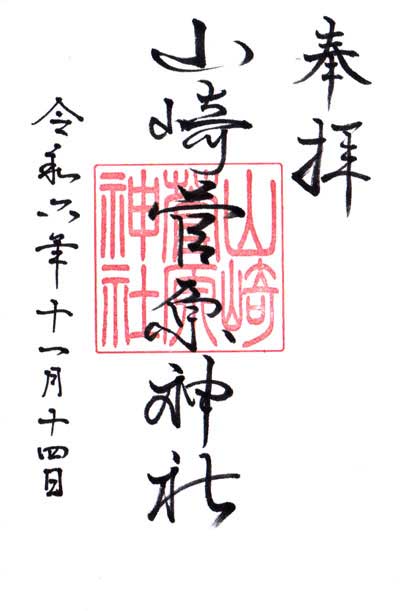 奉拝
山崎菅原神社
山崎
菅原
神社
令和六年十一月十四日